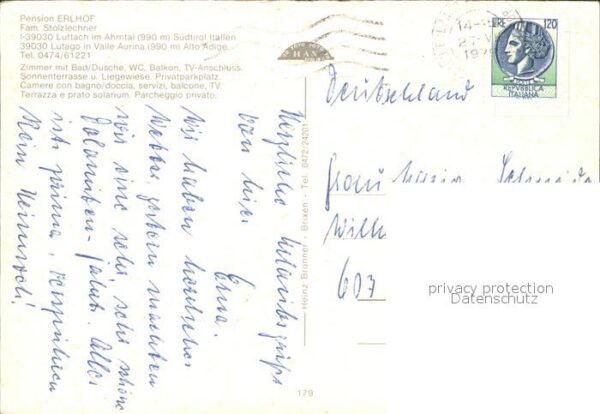 Pension ERLHOF
Fam. Stolzlechner
I-39030 Luttach im Ahrntal (990 m) Südtirol Italien
39030 Lutago in Valle Aurina (990 m) Alto Adige
Tel. 0474/61221
Zimmer mit Bad/Dusche, WC, Balkon, TV-Anschluss.
Sonnenterrasse u. Liegewiese. Privatparkplatz.
Camere con bagno/doccia, servizi, balcone, TV.
Terrazza e prato solarium. Parcheggio privato.
Herzliche Urlaubsgrüße
von hier
Wir haben herrliches
Wetter, gestern machten
wir eine sehr, sehr schöne
Dolomiten-fahrt. Alles
ist prima,
Kein Heimweh!
Heinz Brunner - Brixen - Tel. 0472/24201
179
120
REPUBBLICA
ITALIANA
Deutschland
Frau Maria
607
privacy protection
Datenschutz